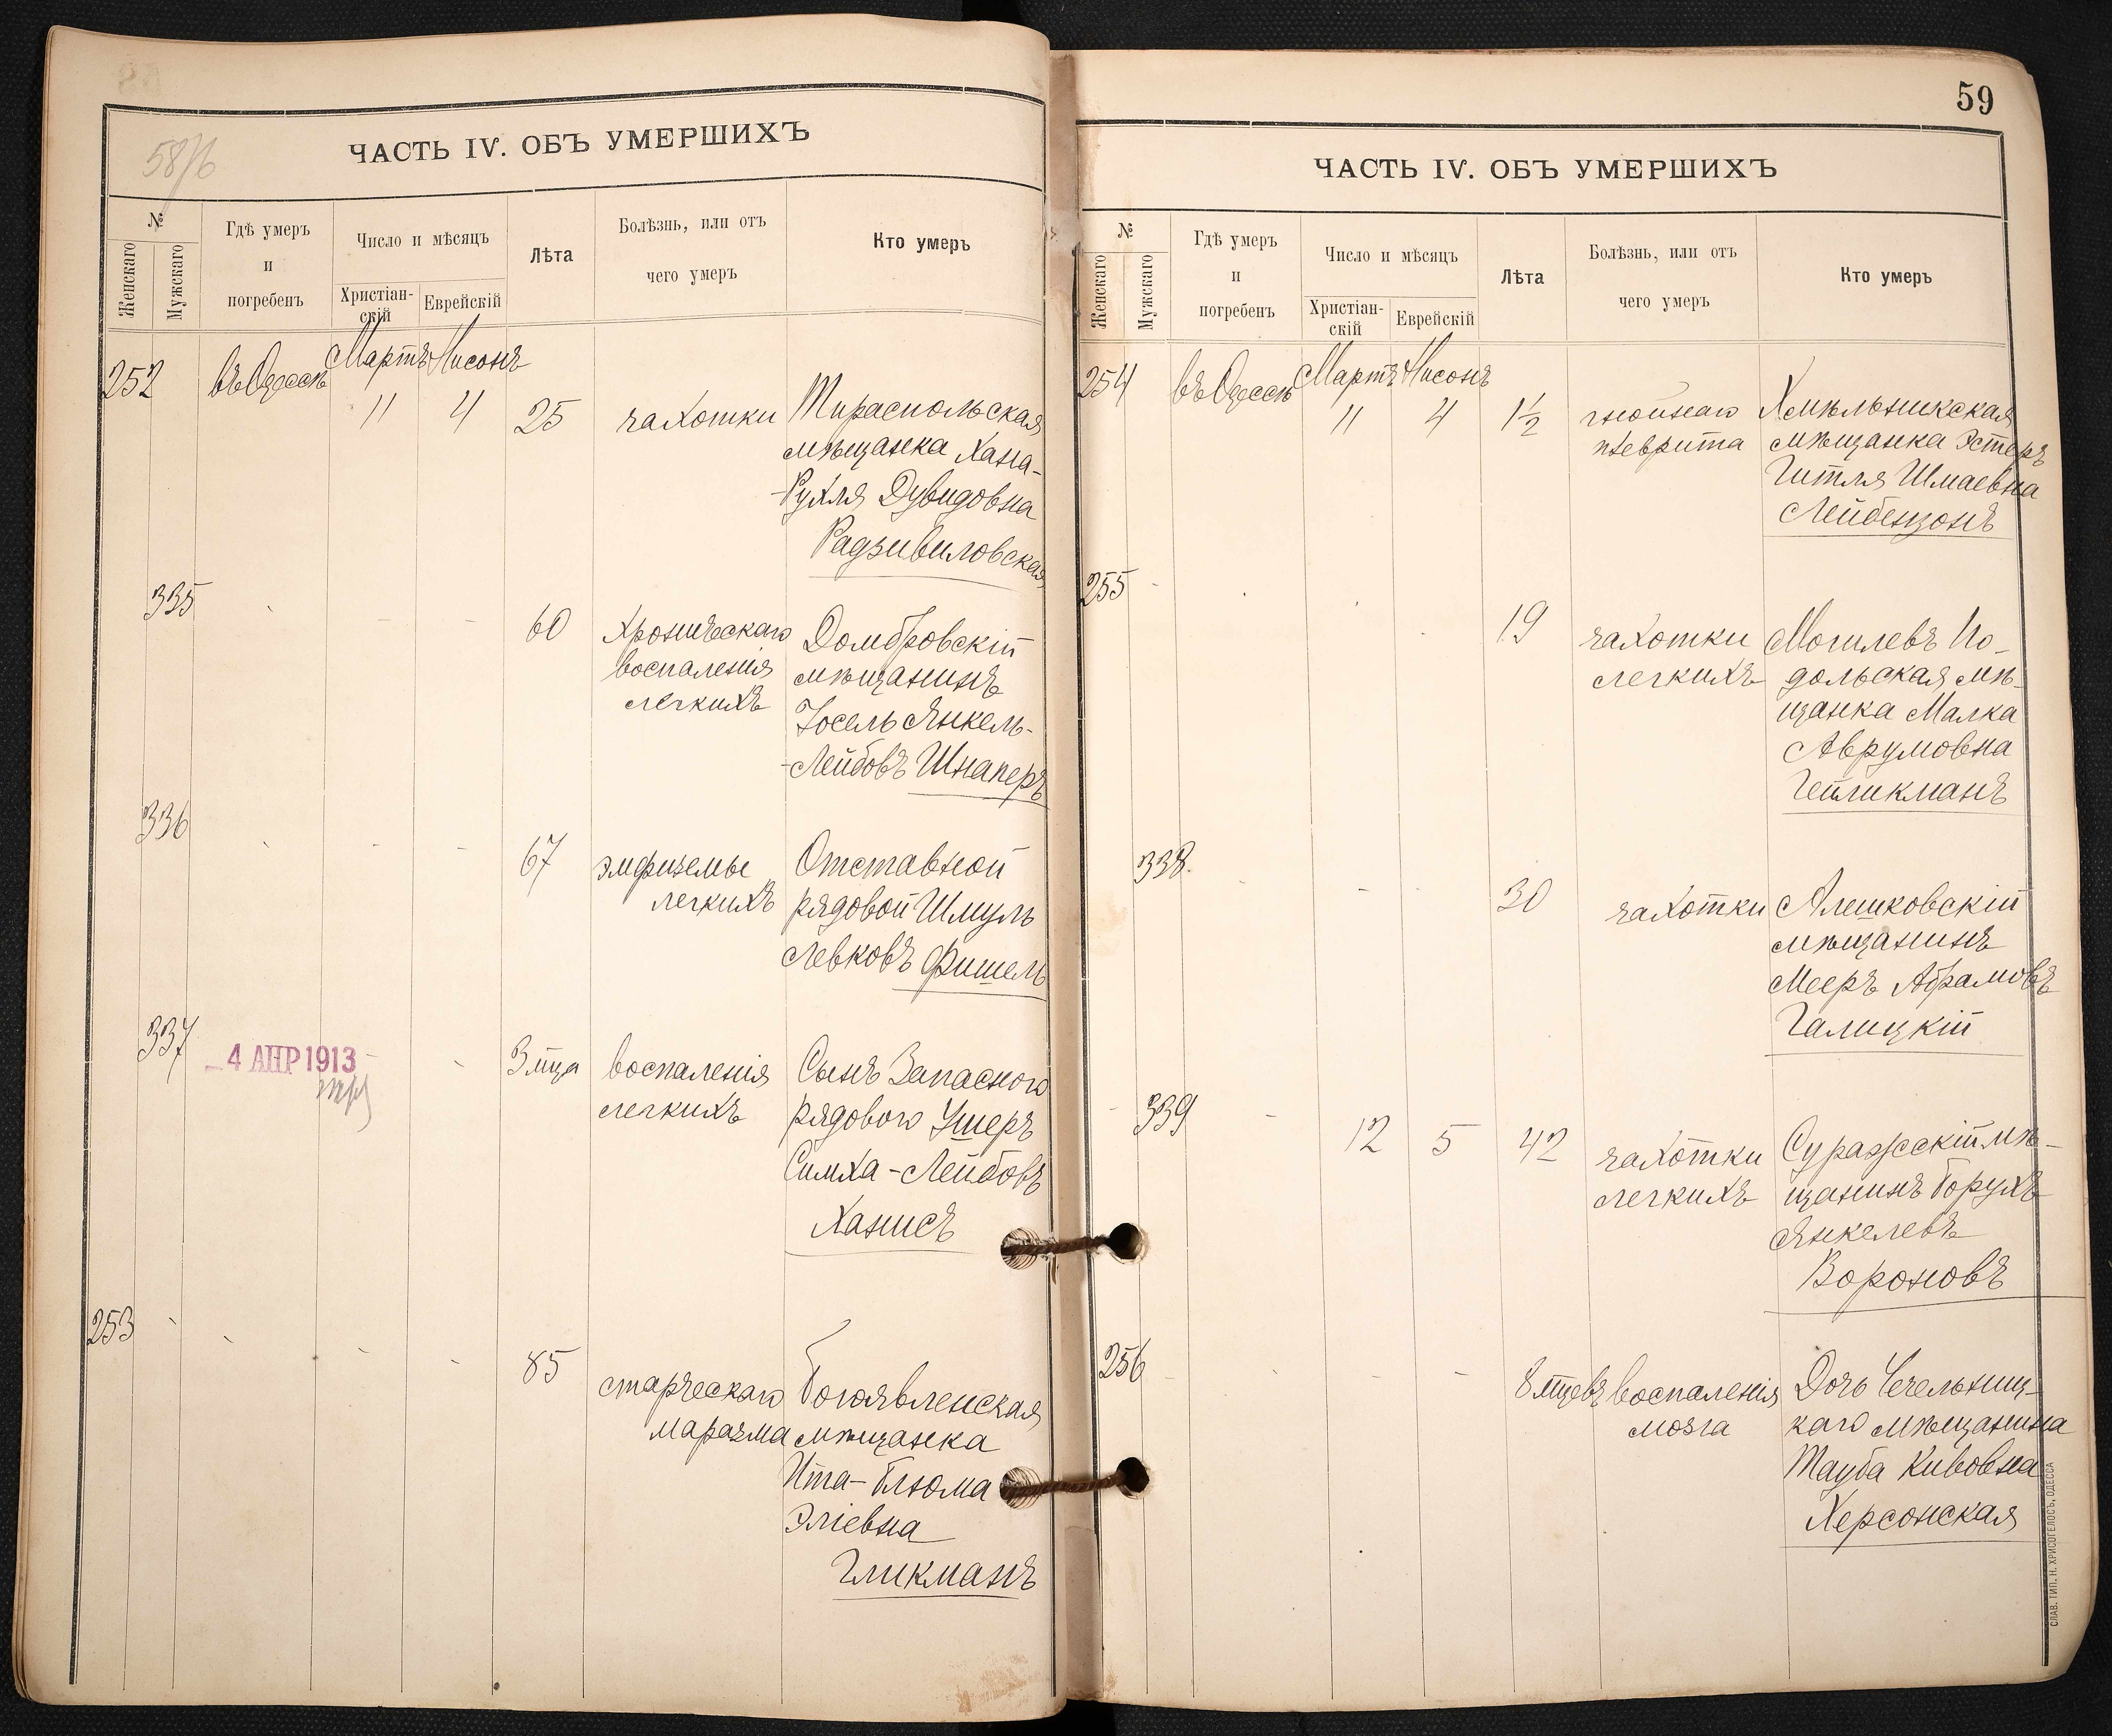 58/б
ЧАСТЬ IV. ОБЪ УМЕРШИХЪ
№
Женскаго
Мужскаго
Гдѣ умеръ
и
погребенъ
Число и мѣсяцъ
Христіан-
скій
Еврейскій
Лѣта
Болѣзнь, или отъ
чего умеръ
Кто умеръ
252 въ Одессѣ Мартъ Нисонъ
11 4 25 чахотки Тираспольская
мѣщанка Хана-
-Рухля Дувидовна
Радзивиловская
335
60 Хроническаго Домбровскій
воспаленія мѣщанинъ
легкихъ Іосель Янкель-
-Лейбовъ Шнаперъ
336
67 эмфиземы Отставной
легкихъ рядовой Шмуль
Левковъ Фишель
337
4 АПР 1913 3 мца воспаленія Сынъ Запасного
легкихъ рядового Ушеръ
Симха-Лейбовъ
Ханисъ
253
85 старческаго Богоявленская
маразма мѣщанка
Ита-Блюма
Эліевна
Гликманъ
59
ЧАСТЬ IV. ОБЪ УМЕРШИХЪ
№
Женскаго
Мужскаго
Гдѣ умеръ
и
погребенъ
Число и мѣсяцъ
Христіан-
скій
Еврейскій
Лѣта
Болѣзнь, или отъ
чего умеръ
Кто умеръ
254 въ Одессѣ Мартъ Нисонъ
11 4 1½ гнойнаго Хмѣльникская
плеврита мѣщанка Эстеръ
Гитля Шмаевна
Лейбензонъ
255
19 чахотки Могилевъ По-
легкихъ дольская мѣ-
щанка Малка
Аврумовна
Гейликманъ
338.
30 чахотки Алешковскій
мѣщанинъ
Мееръ Абрамовъ
Галицкій
339
12 5 42 чахотки Суражскій мѣ-
легкихъ щанинъ Борухъ
Янкелевъ
Вороновъ
256
8 мцевъ воспаленія Дочь Чечельниц-
мозга каго мѣщанина
Тауба Кивовна
Херсонская
СЛАВ. ТИП. Н. ХРИСОГЕЛОСЪ, ОДЕССА